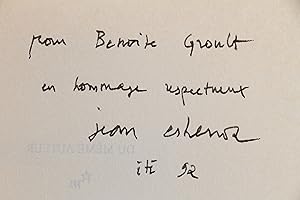 pour Benoîte Groult
en hommage respectueux
jean echenoz
été 92
DU MÊME AUTEUR